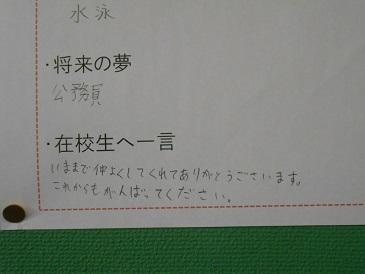 水泳
・将来の夢
公務員
・在校生へ一言
いままで仲よくしてくれてありがとうございます。
これからもがんばってください。